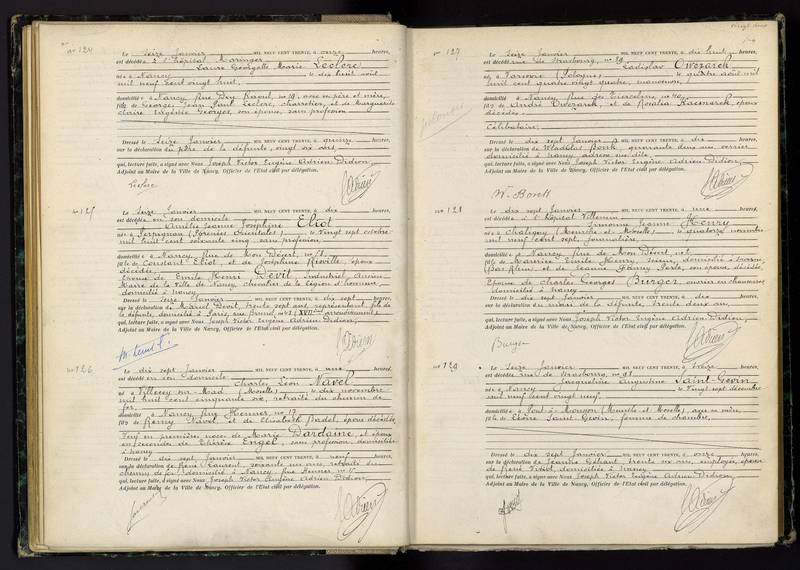 n° 124
Le Seize Janvier MIL NEUF CENT TRENTE, à onze heures,
est décédée à l'hôpital Maringer
Laure Georgette Marie Leclerc
née à Nancy le dix huit août
mil neuf cent vingt huit,
domiciliée à Nancy, Rue Dom Raoul, n° 19, avec ses père et mère,
fille de Georges Jean Paul Leclerc, charretier, et de Marguerite
Claire Eugénie Georges, son épouse, sans profession
Dressé le Seize Janvier à quinze heures,
sur la déclaration du père de la défunte, vingt six ans,
qui, lecture faite, a signé avec Nous Joseph Victor Eugène Adrien Didion,
Adjoint au Maire de la Ville de Nancy, Officier de l'Etat civil par délégation.
Leclerc
n° 125
Le Seize Janvier MIL NEUF CENT TRENTE, à dix heures,
est décédée en son domicile
Amélie Jeanne Joséphine Eliot
née à Perpignan (Pyrénées Orientales) le Vingt sept octobre
mil huit cent soixante cinq, sans profession,
domiciliée à Nancy, Rue de Mon Désert, n°
fille de Constant Eliot, et de Joséphine époux
décédés,
Epouse de Emile Henri Devit, Industriel, Ancien
Maire de la Ville de Nancy, chevalier de la Légion d'honneur,
domicilié à Nancy
Dressé le Seize Janvier à dix sept heures,
sur la déclaration de Marcel Devit, trente sept ans, représentant, fils de
la défunte, domicilié à Paris, rue Brunel, n° (XVIIème arrondissement)
qui, lecture faite, a signé avec Nous Joseph Victor Eugène Adrien Didion,
Adjoint au Maire de la Ville de Nancy, Officier de l'Etat civil par délégation.
n° 126
Le dix sept Janvier MIL NEUF CENT TRENTE, à une heures,
est décédé en son domicile
Charles Léon Navel
né à Villecey-sur-Mad (Moselle) le dix novembre
mil huit cent cinquante six, retraité du chemin de
fer,
domicilié à Nancy, Rue Henner, n° 17
fils de Remy Navel et de Elisabeth Badel, époux décédés
Veuf en première noces de Marie Dardaine et époux
en secondes de Thérèse Engel, sans profession, domiciliée
à Nancy
Dressé le dix sept Janvier à neuf heures,
sur la déclaration de René Laurent, soixante un ans, retraité du
chemin de fer, domicilié à Nancy, Rue Henner, n° 17
qui, lecture faite, a signé avec Nous Joseph Victor Eugène Adrien Didion,
Adjoint au Maire de la Ville de Nancy, Officier de l'Etat civil par délégation.
n° 127
Le Seize Janvier MIL NEUF CENT TRENTE, à dix huit heures,
est décédé rue de Strasbourg, n° 29
Ladislas Owczarek
né à (Pologne) le quatre août mil
huit cent quatre vingt quatre, manœuvre,
domicilié à Nancy, Rue des n° 40
fils de André Owczarek, et de Rosalia Kacsmarek, époux
décédés
Célibataire,
Dressé le dix sept Janvier à dix heures,
sur la déclaration de Wladislas Borek, quarante deux ans, verrier
domicilié à Nancy,
qui, lecture faite, a signé avec Nous Joseph Victor Eugène Adrien Didion,
Adjoint au Maire de la Ville de Nancy, Officier de l'Etat civil par délégation.
W. Borek
n° 128
Le dix sept Janvier MIL NEUF CENT TRENTE, à une heures,
est décédée à l'hôpital Villemin
Simonne Jeanne Henry
née à Chaligny (Meurthe et Moselle) le quatorze novembre
mil neuf cent sept, Journalière,
domiciliée à Nancy, Rue de Mon Désert, n°
fille de Maurice Emile Henry, domicilié à
(Bas Rhin) et de Jeanne Fanny son épouse, décédée,
Epouse de Charles Georges Burger, ouvrier en chaussures,
domicilié à Nancy
Dressé le dix sept Janvier à dix heures,
sur la déclaration du mari de la défunte, trente deux ans,
qui, lecture faite, a signé avec Nous Joseph Victor Eugène Adrien Didion,
Adjoint au Maire de la Ville de Nancy, Officier de l'Etat civil par délégation.
Burger
n° 129
Le Seize Janvier MIL NEUF CENT TRENTE, à treize heures,
est décédée rue de Strasbourg, n° 91
Jacqueline Augustine Saint-Gevin
née à Nancy le Vingt sept décembre
mil neuf cent vingt neuf,
domiciliée à Pont-à-Mousson (Meurthe et Moselle), avec sa mère,
fille de Saint-Gevin, femme de chambre,
Dressé le dix sept Janvier à onze heures,
sur la déclaration de Jeanne trente six ans, employée, épouse
de René domiciliée à Nancy
qui, lecture faite, a signé avec Nous Joseph Victor Eugène Adrien Didion,
Adjoint au Maire de la Ville de Nancy, Officier de l'Etat civil par délégation.